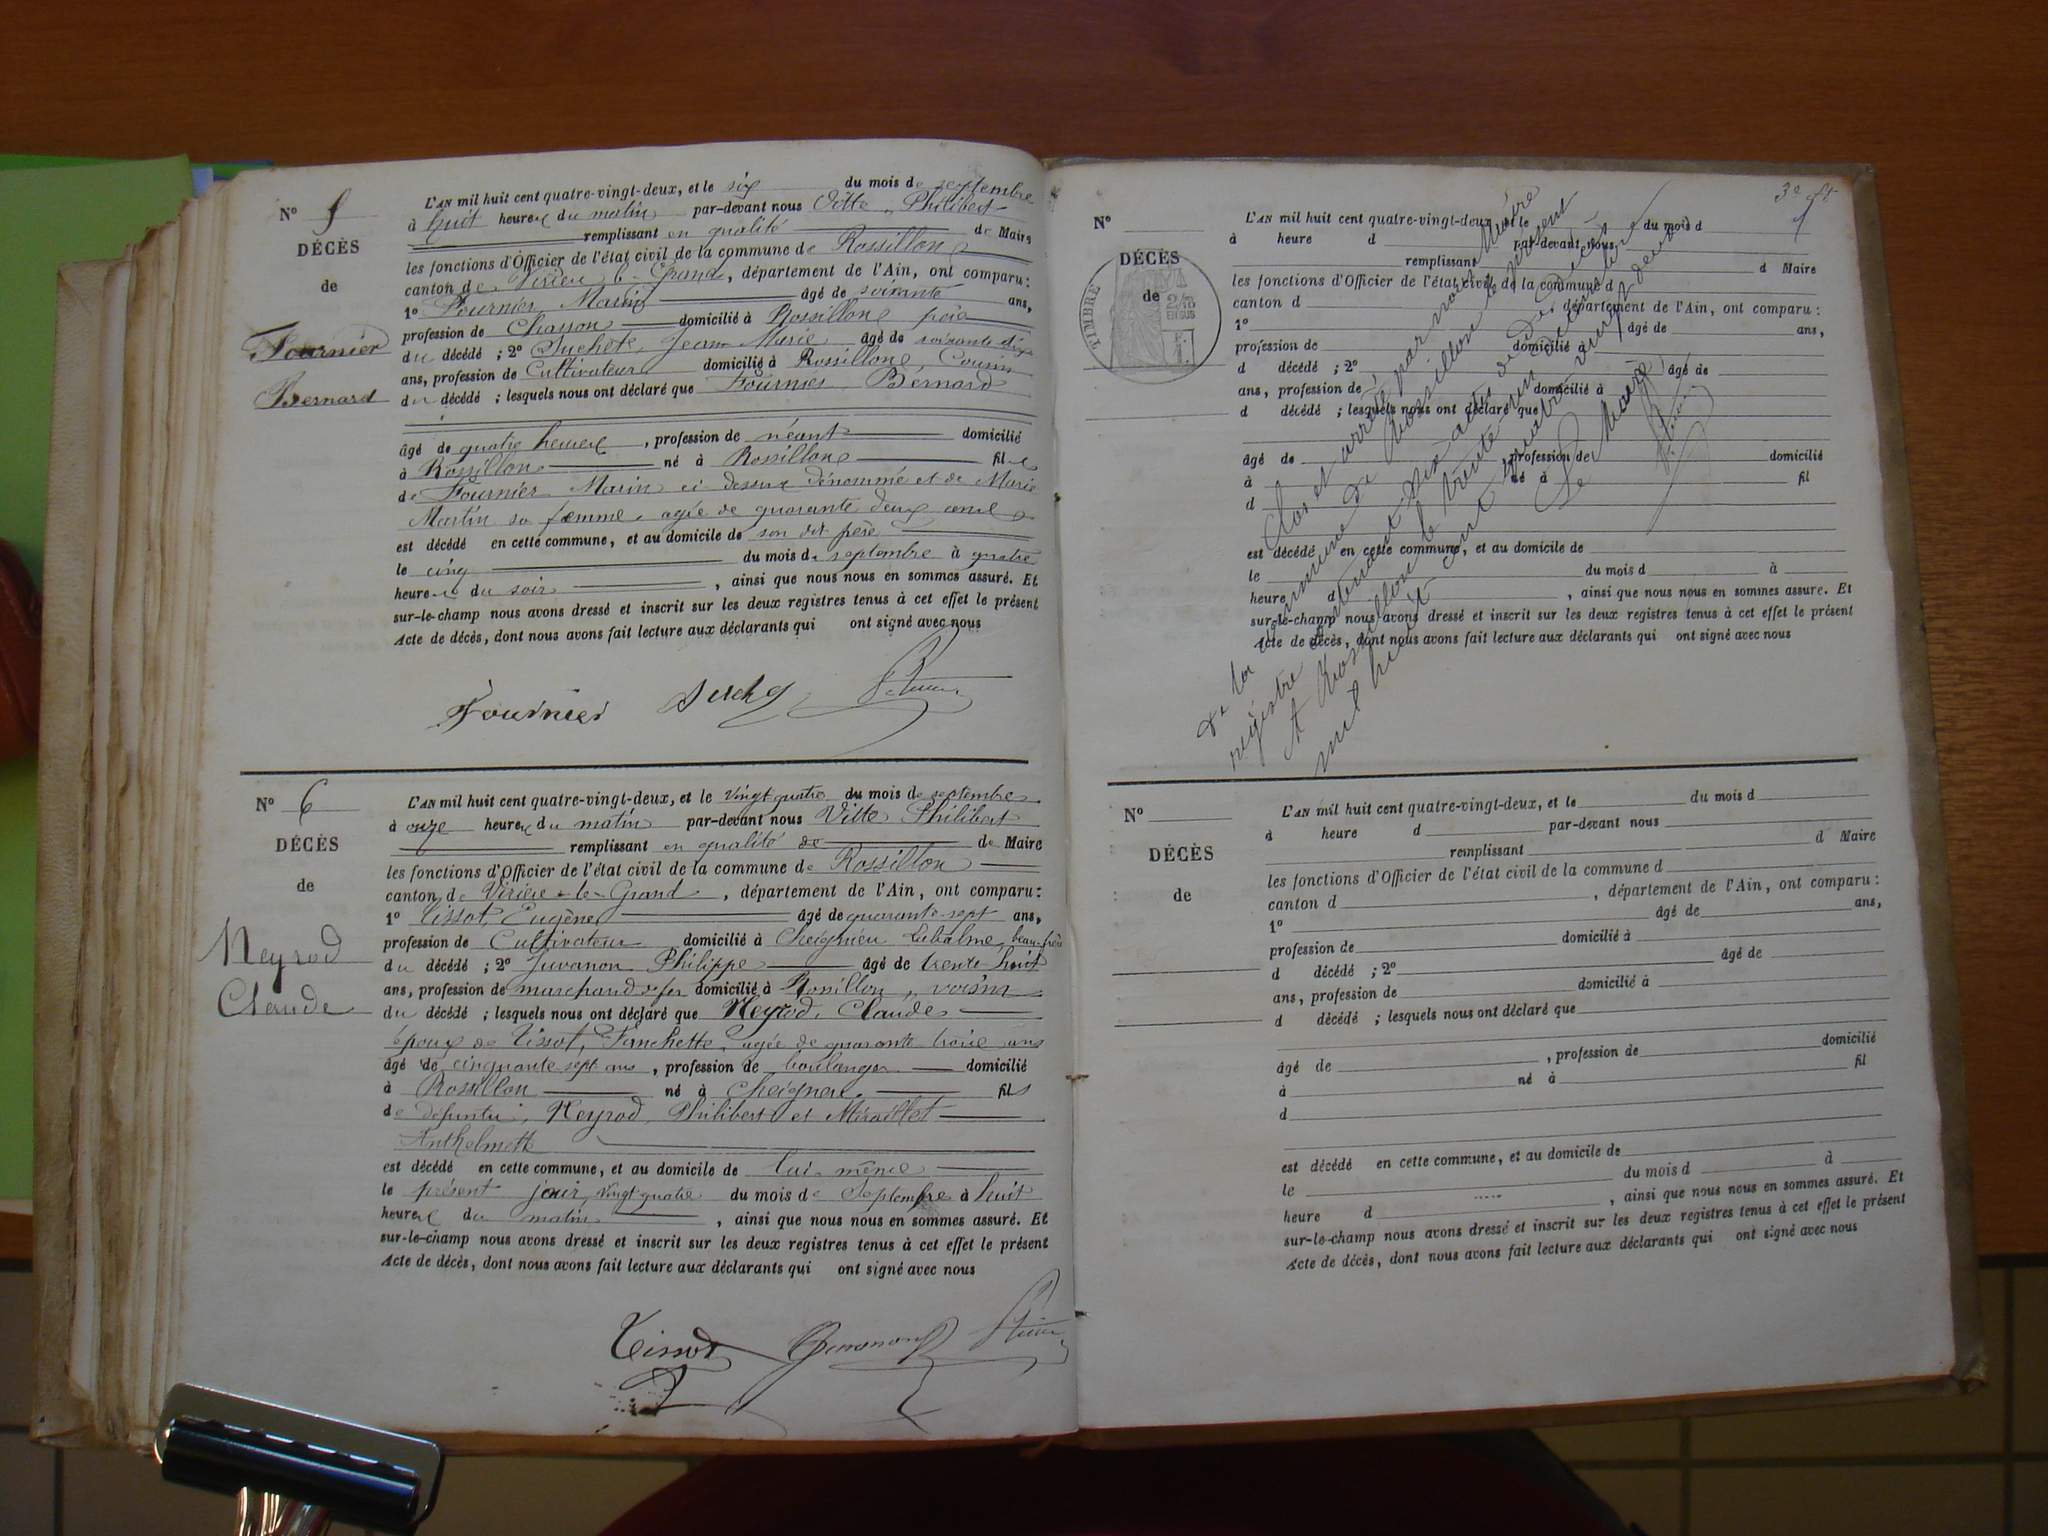 N° 5
DÉCÈS
de
Fournier
Bernard
L'AN mil huit cent quatre-vingt-deux, et le six du mois de septembre
à huit heures du matin par-devant nous Vitte, Philibert
remplissant en qualité de Maire
les fonctions d'Officier de l'état civil de la commune de Rossillon
canton de Virieu-le-Grand, département de l'Ain, ont comparu :
1° Fournier Marin âgé de soixante ans,
profession de domicilié à Rossillon père
du décédé ; 2° Suchet, Jean Marie âgé de soixante dix
ans, profession de Cultivateur domicilié à Rossillon, Cousin
du décédé ; lesquels nous ont déclaré que Fournier Bernard
âgé de quatre heures, profession de néant domicilié
à Rossillon né à Rossillon fils
de Fournier Marin ci dessus dénommé et de Marie
Martin sa femme, agée de quarante deux ans
est décédé en cette commune, et au domicile de son dit père
le cinq du mois de septembre à quatre
heures du soir, ainsi que nous nous en sommes assuré. Et
sur-le-champ nous avons dressé et inscrit sur les deux registres tenus à cet effet le présent
Acte de décès, dont nous avons fait lecture aux déclarants qui ont signé avec nous
Fournier Suchet
N° 6
DÉCÈS
de
Neyrod
Claude
L'AN mil huit cent quatre-vingt-deux, et le vingt quatre du mois de septembre
à onze heures du matin par-devant nous Vitte Philibert
remplissant en qualité de de Maire
les fonctions d'Officier de l'état civil de la commune de Rossillon
canton de Virieu-le-Grand, département de l'Ain, ont comparu :
1° Tissot, Eugène âgé de quarante-sept ans,
profession de Cultivateur domicilié à Cheignieu Labalme, beau-frère
du décédé ; 2° Juvanon Philippe âgé de trente huit
ans, profession de marchand de fer domicilié à Rossillon, voisin
du décédé ; lesquels nous ont déclaré que Neyrod, Claude
époux de Tissot, Fanchette, agée de quarante trois ans
âgé de cinquante sept ans, profession de boulanger domicilié
à Rossillon né à Cheignieu fils
de défunts, Neyrod, Philibert et Miraillet
Anthelmette
est décédé en cette commune, et au domicile de lui-même
le présent jour, vingt quatre du mois de Septembre à huit
heures du matin, ainsi que nous nous en sommes assuré. Et
sur-le-champ nous avons dressé et inscrit sur les deux registres tenus à cet effet le présent
Acte de décès, dont nous avons fait lecture aux déclarants qui ont signé avec nous
Tissot Juvanon
N°
DÉCÈS
de
TIMBRE
2/10
EN SUS
L'AN mil huit cent quatre-vingt-deux, et le du mois d
à heure d par-devant nous
remplissant d Maire
les fonctions d'Officier de l'état civil de la commune d
canton d département de l'Ain, ont comparu :
1° âgé de ans,
profession de domicilié à
d décédé ; 2° âgé de
ans, profession de domicilié à
d décédé ; lesquels nous ont déclaré que
âgé de profession de domicilié
à né à fil
d
est décédé en cette commune, et au domicile de
le du mois d à
heure d, ainsi que nous nous en sommes assuré. Et
sur-le-champ nous avons dressé et inscrit sur les deux registres tenus à cet effet le présent
Acte de décès, dont nous avons fait lecture aux déclarants qui ont signé avec nous
Clos et arrêté par nous Maire
de la commune de Rossillon le présent
registre contenant six actes de Décès
A Rossillon le trente-un décembre
mil huit cent quatre vingt deux
Le Maire
N°
DÉCÈS
de
L'AN mil huit cent quatre-vingt-deux, et le du mois d
à heure d par-devant nous
remplissant d Maire
les fonctions d'Officier de l'état civil de la commune d
canton d, département de l'Ain, ont comparu :
1° âgé de ans,
profession de domicilié à
d décédé ; 2° âgé de
ans, profession de domicilié à
d décédé ; lesquels nous ont déclaré que
âgé de, profession de domicilié
à né à fil
d
est décédé en cette commune, et au domicile de
le du mois d à
heure d, ainsi que nous nous en sommes assuré. Et
sur-le-champ nous avons dressé et inscrit sur les deux registres tenus à cet effet le présent
Acte de décès, dont nous avons fait lecture aux déclarants qui ont signé avec nous